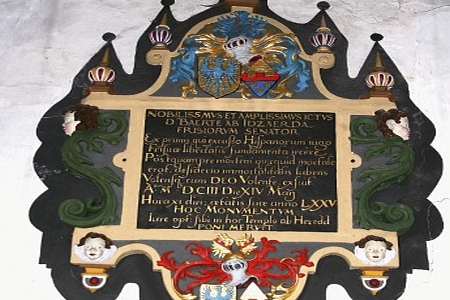 NOBILISSMVS ET AMPLISSIMVS ICTVS
D. BAERTE AB IDZAERDA
FRISIORVM SENATOR
Ex primis qui excusso Hispanorum iugo
Frisicæ libertatis fundamenta iecere
Postquam præ mortim quicquid mortale
erat, desiderio immortalitatis lubens
Volensq cum DEO Volente, exsuit
Aº. Mº. DCIII Die XIV Maij
Hora xi diei; ætatis suæ anno LXXV
HOC MONVMENTVM
Iure opt: sibi in hoc Templo ab Heredd
PONI MERVIT